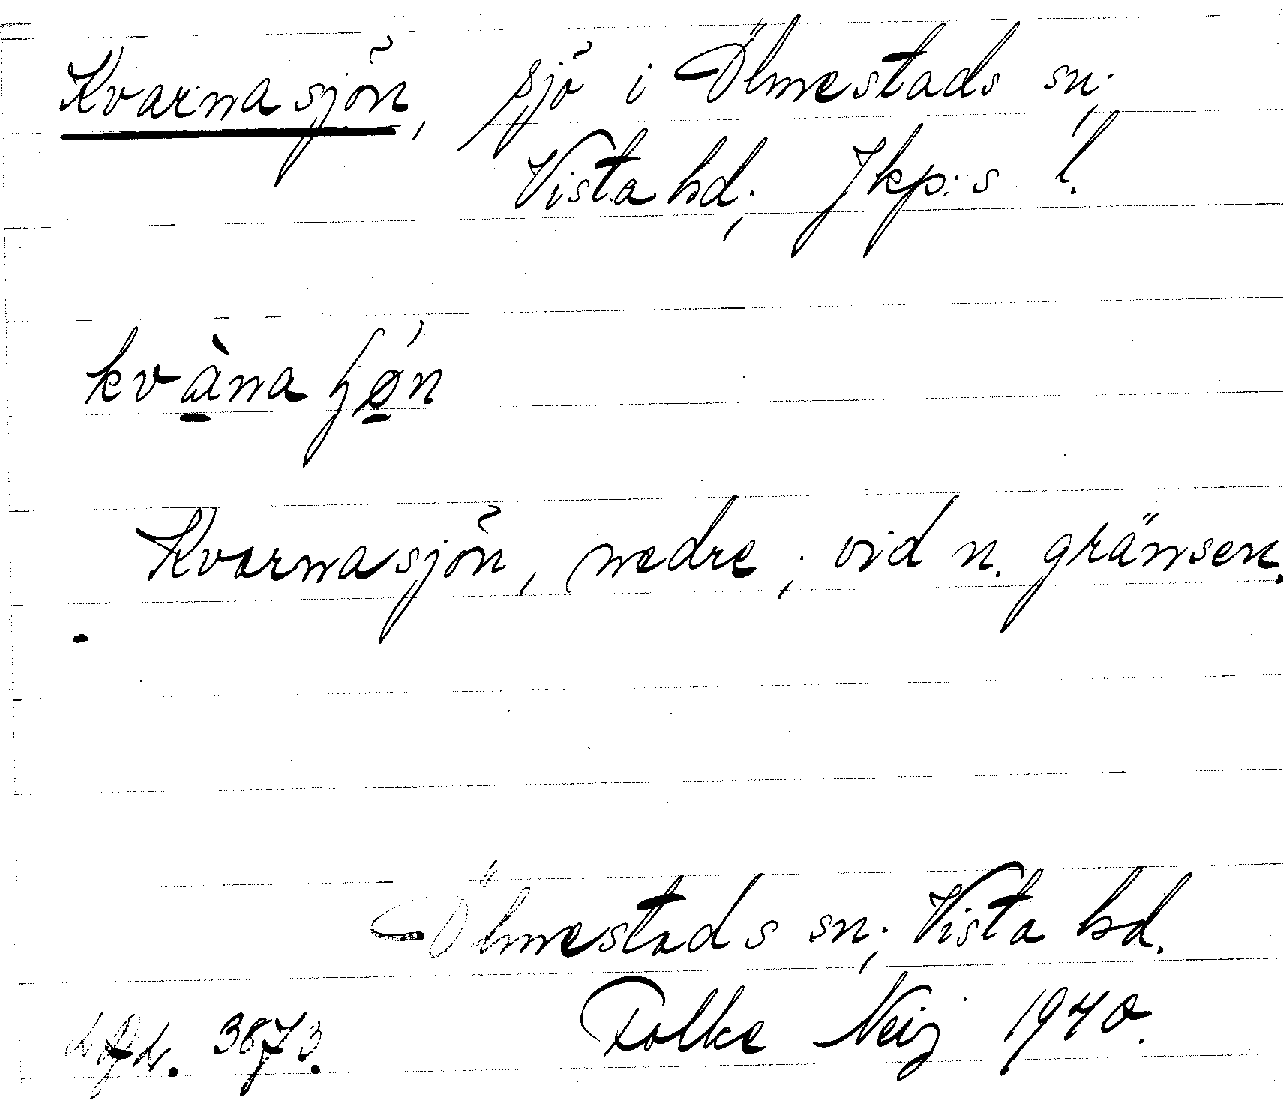 Kvarnasjön, sjö i Ölmestads sn;
Vista hd; Jkp:s l.
kvàna ʃǿn
Kvarnasjön, nedre; vid n. gränsen.
Ölmestads sn; Vista hd.
Folke Neij 1940.
3873.